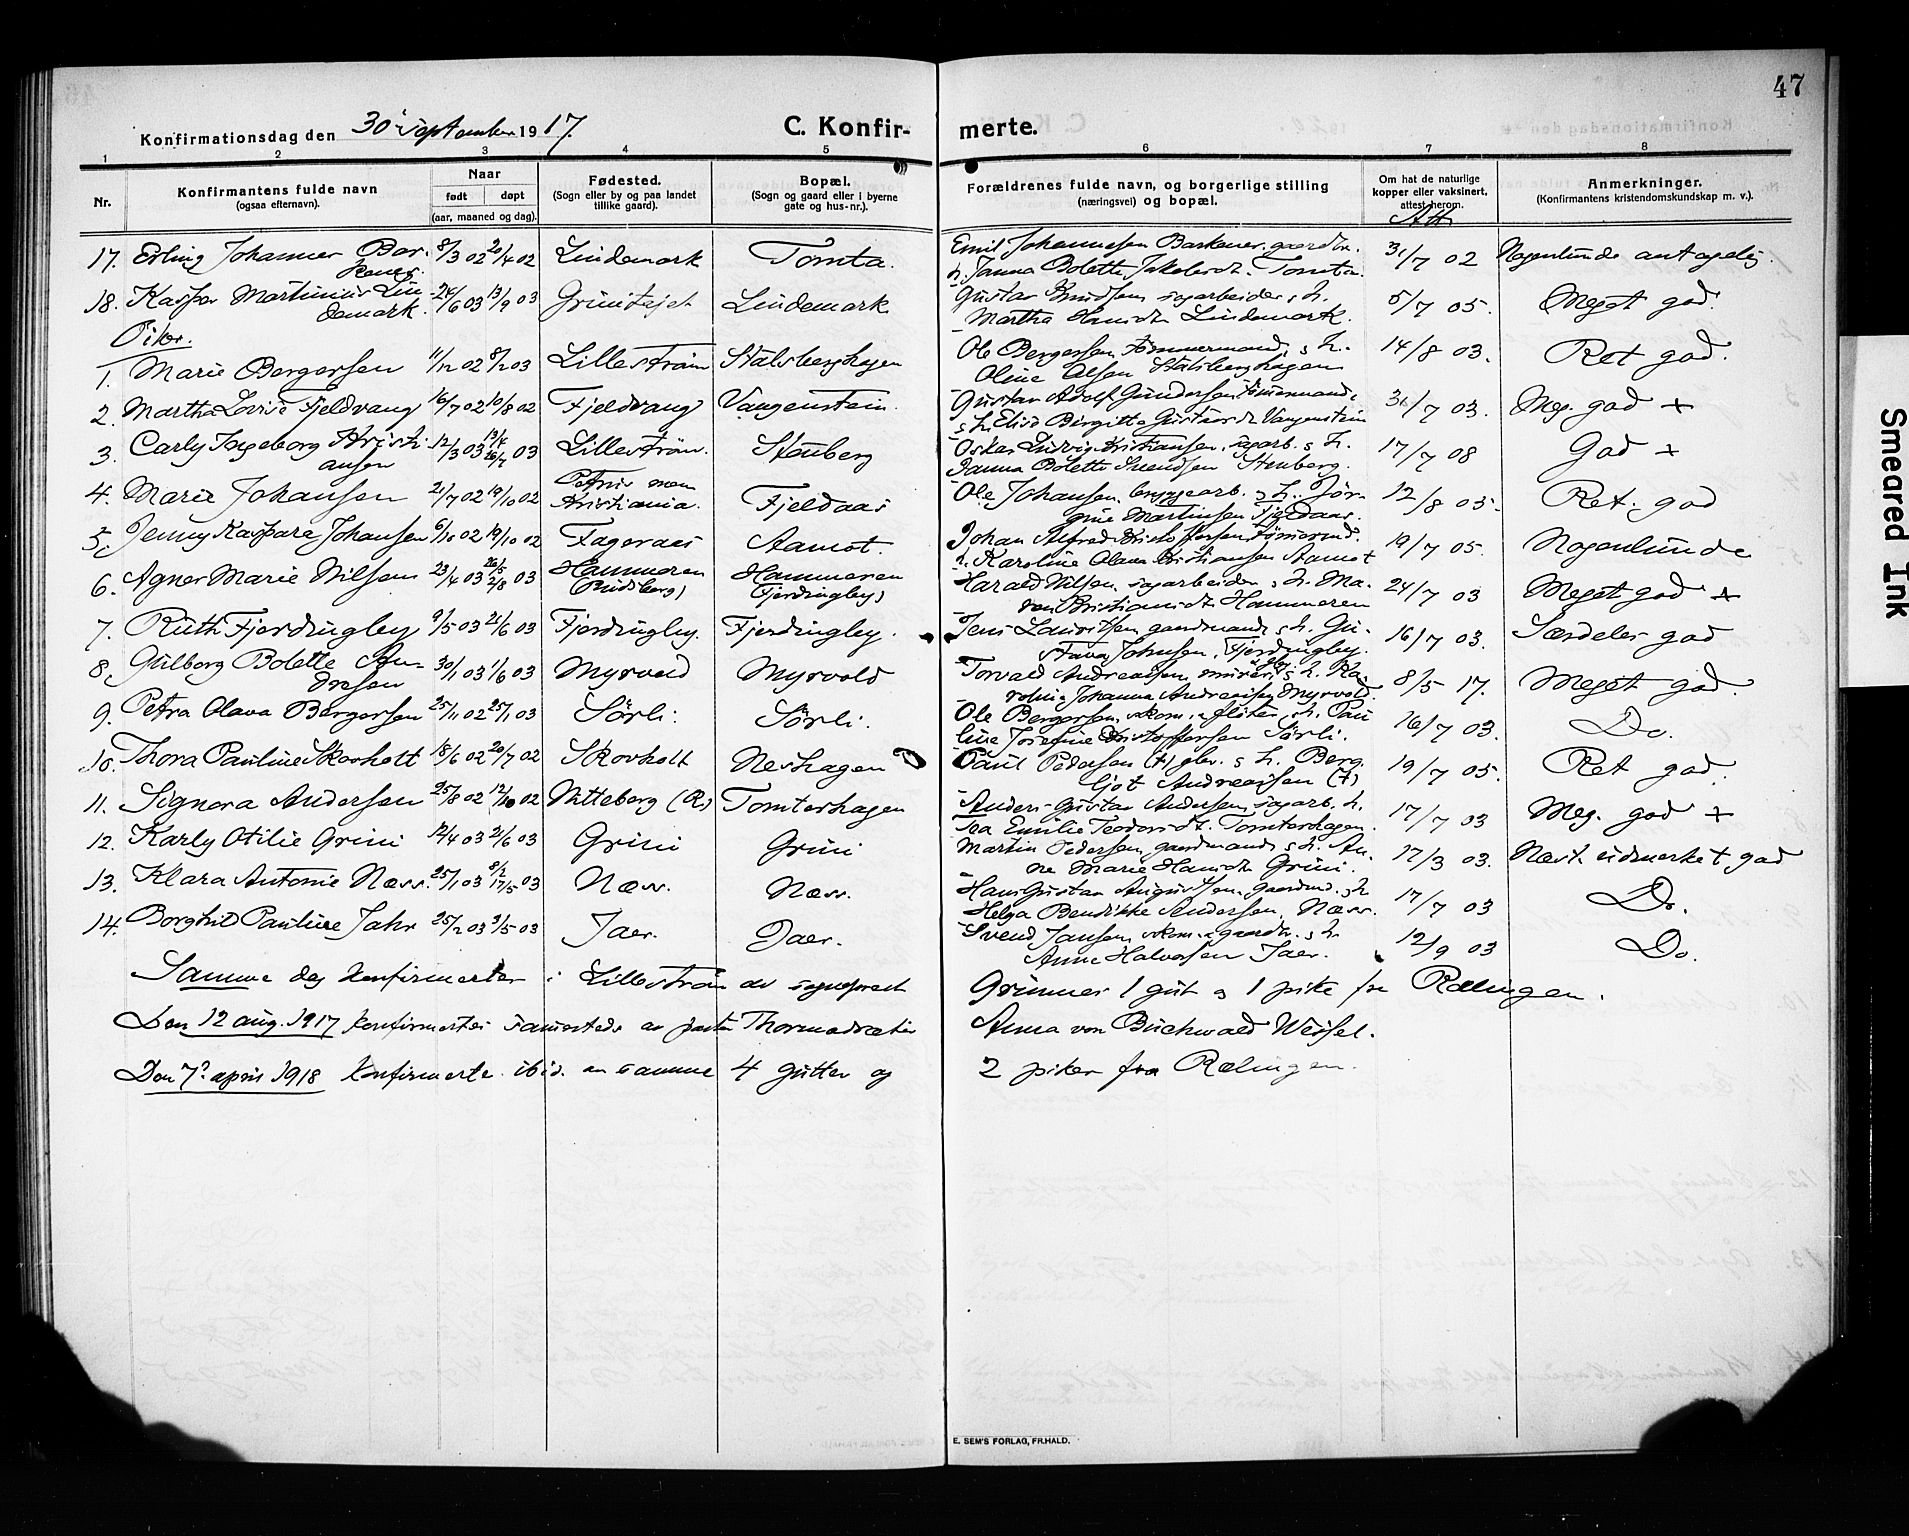 47
Konfirmationsdag den 30 september 1917
C. Konfirmerte.
1 2 3 4 5 6 7 8
Nr.
Konfirmantens fulde navn
(ogsaa efternavn).
Naar
født døpt
(aar, maaned og dag).
Fødested.
(Sogn eller by og paa landet
tillike gaard).
Bopæl.
(Sogn og gaard eller i byerne
gate og hus-nr.).
Forældrenes fulde navn, og borgerlige stilling
(næringsvei) og bopæl.
Om hat de naturlige
kopper eller vaksinert,
attest herom.
Att
Anmerkninger.
(Konfirmantens kristendomskundskap m. v.).
17. Erling Johannes Bar- 8/3 02 20/4 02 Lindemark Tomta. Emil Johannesen gaardbr. 31/7 02 Nogenlunde antagelig
h. Janna Bolette Tomta
18. Kaspar Martinius Lin- 24/6 03 13/9 03 Lindemark Gustav Knudsen sagarbeider, h. 5/7 05. Meget god.
demark. Martha Lindemark.
Piker.
1. Marie Bergersen 11/12 02 8/2 03 Lillestrøm Stalsberghagen Ole Bergersen, tømmermand, s h. 14/8 03. Ret god.
Oline Olsen Stalsberghagen
2. Martha Lovise Fjeldvang 16/7 02 10/8 02 Fjeldvang Vangenstein. Gustav Adolf Gundersen 31/7 03. Meg. god +
s h. Elise Birgitte Vangenstein
3. Carly Ingeborg Kristi- 12/3 03 13/4 26/7 03 Lillestrøm. Stenberg Oskar Ludvig Kristiansen, sagarb. s h. 17/7 08 God +
ansen Janna Bolette Svendsen Stenberg.
4. Marie Johansen 21/7 02 19/10 02 Kristiania. Fjeldaas Ole Johansen, bryggearb. s h. Jør- 12/8 03. Ret god
gine Martinsen Fjeldaas.
5. Jenny Kaspara Johansen 6/10 02 19/10 02 Fageraas Aamot. Johan Alfred Kristoffersen 19/7 05. Nogenlunde
h. Karoline Olava Kristiansen Aamot
6. Agnes Marie Nilsen 23/4 03 26/5 2/8 03 Hammeren Hammeren Harald Nilsen, sagarbeider, s h. Ma- 24/7 03 Meget god +
Fjerdingby) Hammeren
7. Ruth Fjerdingby 9/5 03 21/6 03 Fjerdingby. Fjerdingby. Jens Lauritsen, gaardmand, s h. Gu- 16/7 03. Særdeles god
stava Johnsen, Fjerdingby.
8. Gulborg Bolette An- 30/1 03 1/6 03 Myrvold Myrvold Torvald Andreassen, murer, s h. Ka- 8/5 17. Meget god.
dresen roline Johanna Andreassen Myrvold.
9. Petra Olava Bergersen 25/11 02 25/1 03 Sørli. Sørli. Ole Bergersen, fløter, s h. Pau 16/7 03. Do.
line Josefine Kristoffersen Sørli.
10. Thora Pauline Skovholt 18/6 02 20/7 02 Skovholt Neshagen Paul Pedersen (†) s h. Berg 19/7 05. Ret god.
ljot Andreassen (†)
11. Signora Andersen 25/8 02 12/10 02 Nitteberg (R.) Tomterhagen Anders Gustav Andersen, sagarb. h. 17/7 03 Meg. god +
Emilie Tomterhagen.
12. Karly Otilie Grini 12/4 03 21/6 03 Grini Grini Martin Pedersen, gaardmand, s h. An- 17/3 03. Næst. udmerket god
ne Marie Grini.
13. Klara Antonie Næss. 25/1 03 8/2 17/5 03 Næss. Næss. Hans Gustav Augustsen, gaardmd. s h 17/7 03 Do.
Helga Bendikke Andersen, Næss.
14. Borghild Pauline Jahr 25/2 03 3/5 03 Jaer. Jaer. Svend Jansen, gaardbr. s h. 12/9 03 Do.
Anne Halvorsen Jaer.
Samme dag konfirmertes i Lillestrøm av sogneprest Grimmer 1 gut og 1 pike fra Rælingen.
Den 12 aug. 1917 konfirmertes sammesteds av pastor Anna von Buchwald Wessel.
Den 7. april 1918 konfirmerte ibid. samme 4 gutter og 2 piker fra Rælingen.
E. SEM'S FORLAG, FR.HALD.
Smeared Ink